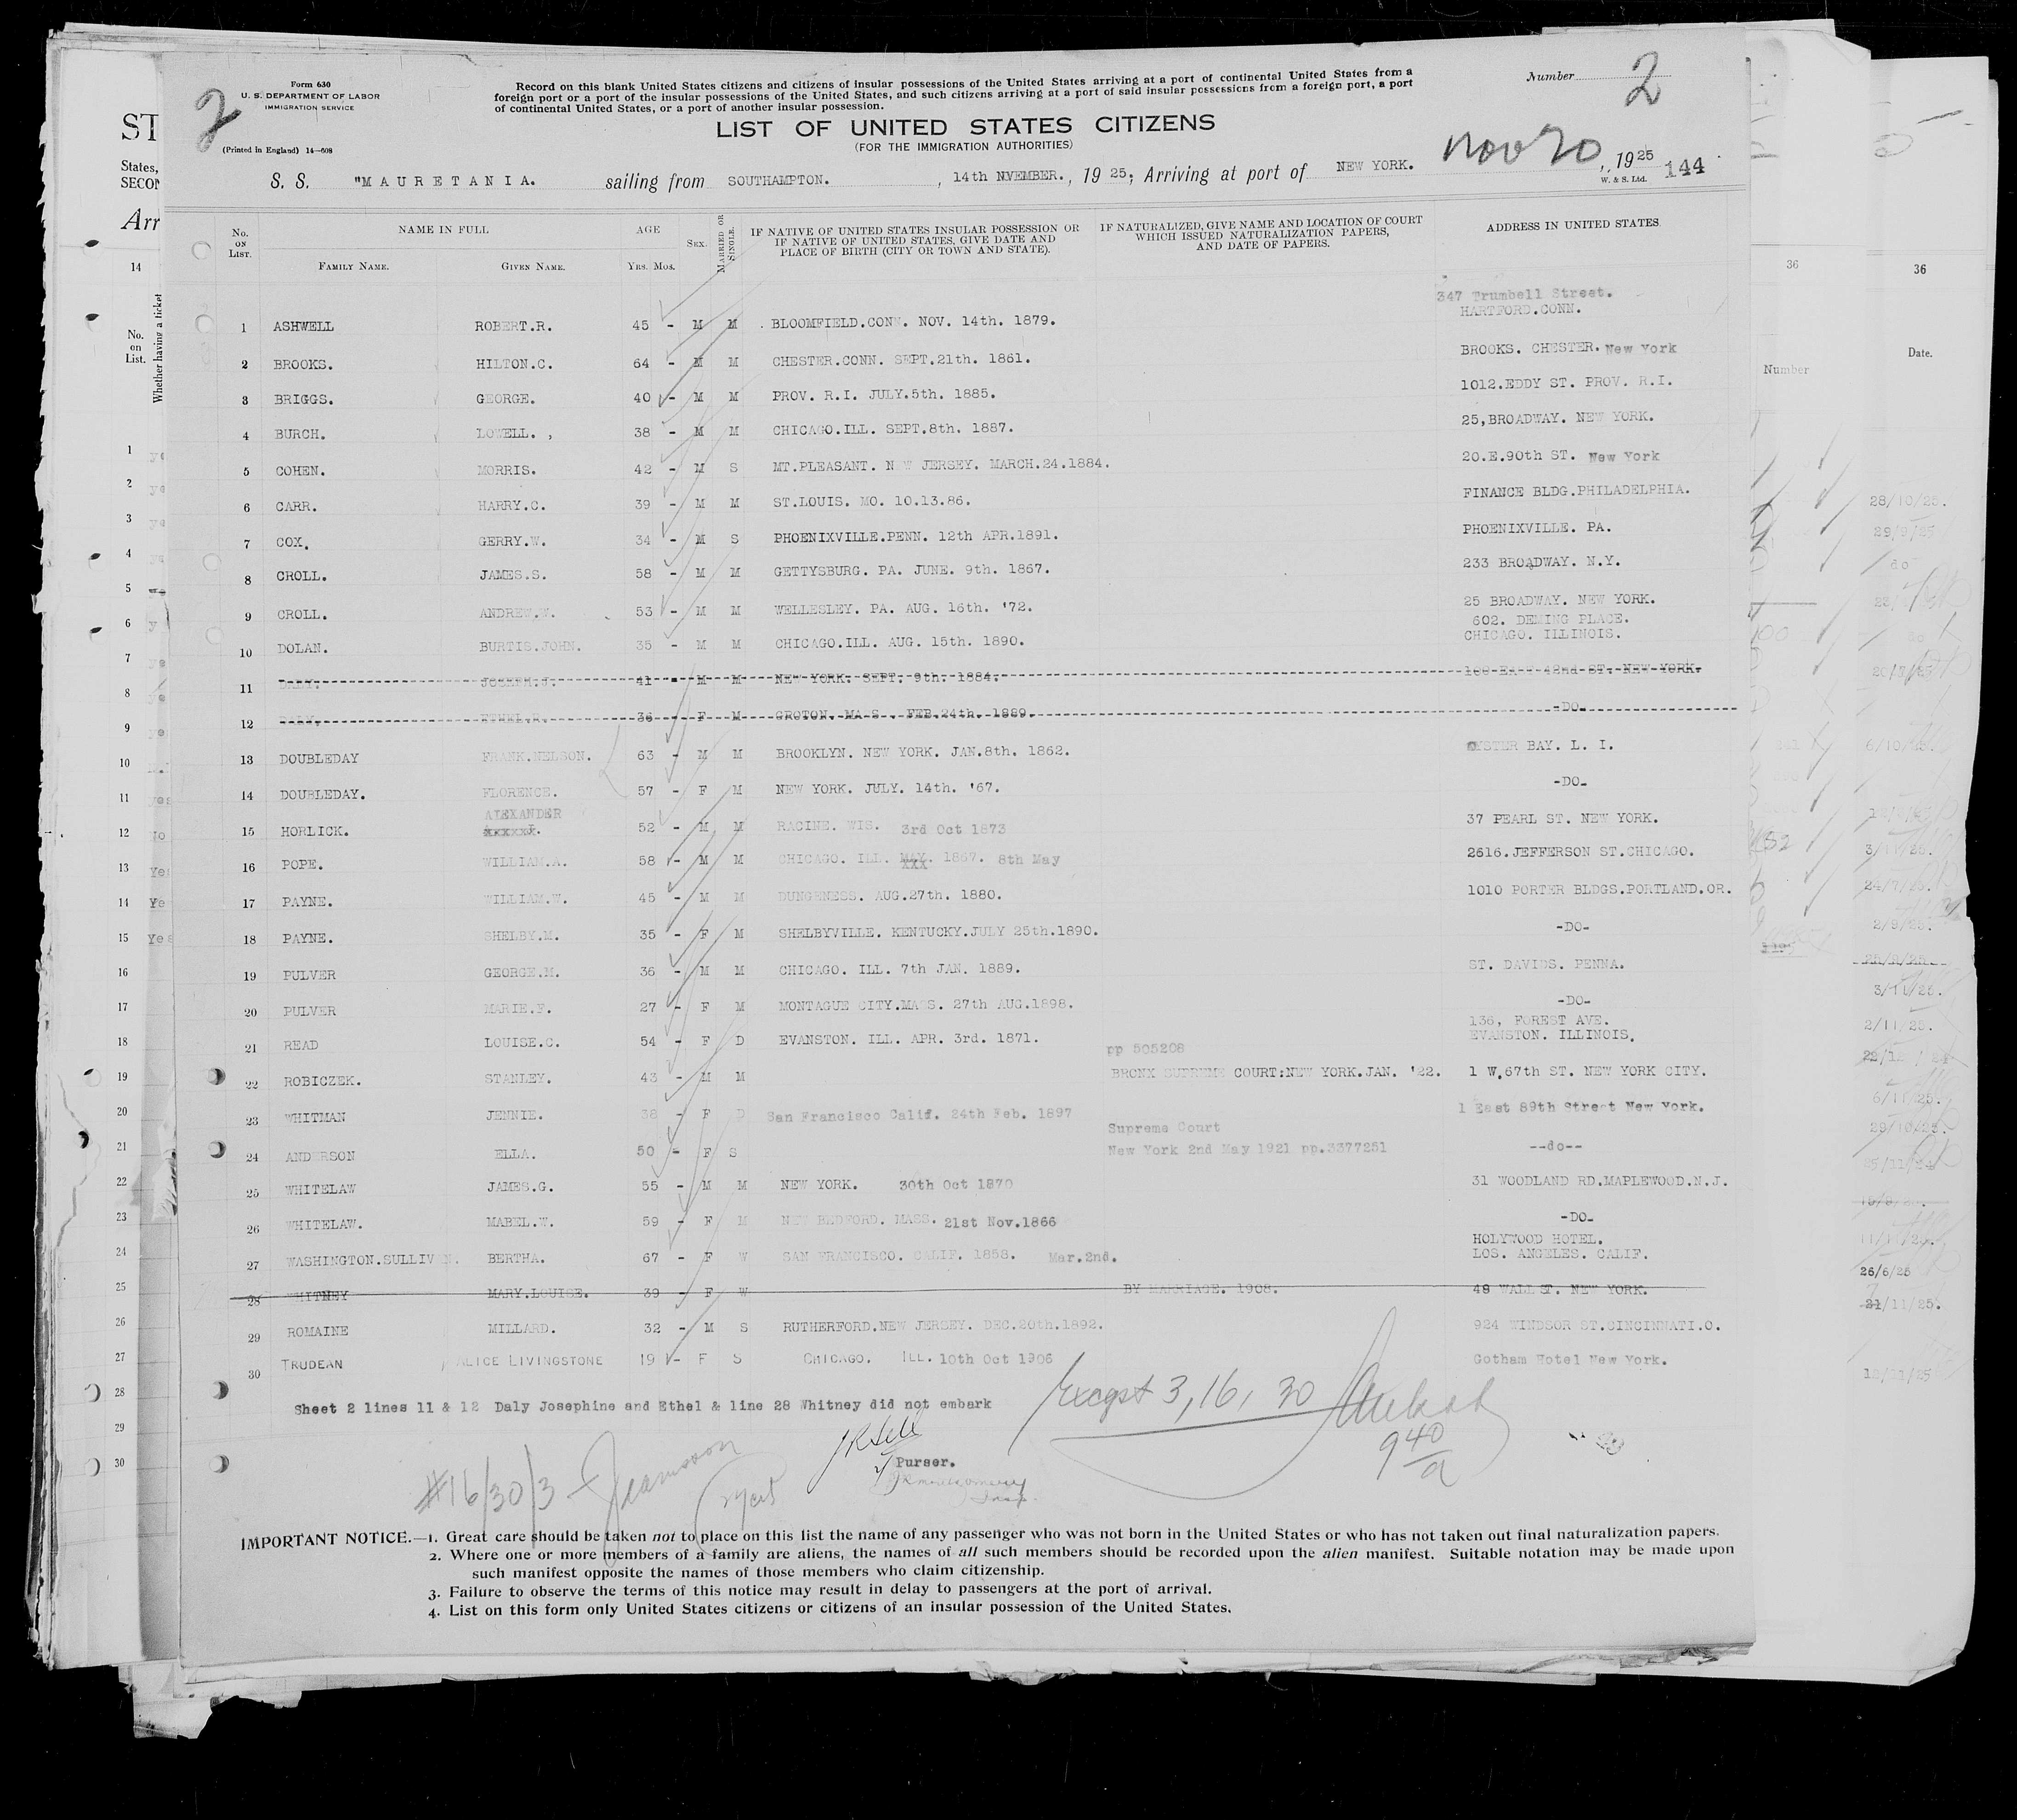 2
Form 630
U. S. DEPARTMENT OF LABOR
IMMIGRATION SERVICE
(Printed in England) 14—608
Record on this blank United States citizens and citizens of insular possessions of the United States arriving at a port of continental United States from a
foreign port or a port of the insular possessions of the United States, and such citizens arriving at a port of said insular possessions from a foreign port, a port
of continental United States, or a port of another insular possession.
Number 2
LIST OF UNITED STATES CITIZENS
(FOR THE IMMIGRATION AUTHORITIES)
S. S. "MAURETANIA. sailing from SOUTHAMPTON. , 14th NOVEMBER. , 19 25; Arriving at port of NEW YORK. Nov 20, 1925
W. & S. Ltd. 144
No. ON LIST. NAME IN FULL AGE SEX. MARRIED OR SINGLE. IF NATIVE OF UNITED STATES INSULAR POSSESSION OR IF NATIVE OF UNITED STATES, GIVE DATE AND PLACE OF BIRTH (CITY OR TOWN AND STATE). IF NATURALIZED, GIVE NAME AND LOCATION OF COURT WHICH ISSUED NATURALIZATION PAPERS, AND DATE OF PAPERS. ADDRESS IN UNITED STATES
FAMILY NAME. GIVEN NAME. YRS. MOS.
347 Trumbell Street.
1 ASHWELL ROBERT.R. 45 - M M . BLOOMFIELD.CONN. NOV. 14th. 1879. HARTFORD.CONN.
2 BROOKS. HILTON.C. 64 - M M CHESTER.CONN. SEPT.21th. 1861. BROOKS. CHESTER. New York
3 BRIGGS. GEORGE. 40 - M M PROV. R.I. JULY.5th. 1885. 1012.EDDY ST. PROV. R.I.
4 BURCH. LOWELL. , 38 - M M CHICAGO.ILL. SEPT.8th. 1887. 25,BROADWAY. NEW YORK.
5 COHEN. MORRIS. 42 - M S MT.PLEASANT. NEW JERSEY. MARCH.24.1884. 20.E.90th ST. New York
6 CARR. HARRY.C. 39 - M M ST.LOUIS. MO. 10.13.86. FINANCE BLDG.PHILADELPHIA.
7 COX. GERRY.W. 34 - M S PHOENIXVILLE.PENN. 12th APR.1891. PHOENIXVILLE. PA.
8 CROLL. JAMES.S. 58 - M M GETTYSBURG. PA. JUNE. 9th. 1867. 233 BROADWAY. N.Y.
9 CROLL. ANDREW.W. 53 - M M WELLESLEY. PA. AUG. 16th. '72. 25 BROADWAY. NEW YORK.
602. DEMING PLACE.
10 DOLAN. BURTIS.JOHN. 35 - M M CHICAGO.ILL. AUG. 15th. 1890. CHICAGO. ILLINOIS.
11 DALY. JOSEPH.J. 41 - M M NEW YORK. SEPT. 9th. 1884. 100 EAST 42nd ST. NEW YORK.
12 DALY. ETHEL.R. 36 - F M GROTON. MASS. FEB.24th. 1889. -DO-
13 DOUBLEDAY FRANK.NELSON. 63 - M M BROOKLYN. NEW YORK. JAN.8th. 1862. OYSTER BAY. L. I.
14 DOUBLEDAY. FLORENCE. 57 - F M NEW YORK. JULY. 14th. '67. -DO-
ALEXANDER
15 HORLICK. J. 52 - M M RACINE. WIS. 3rd Oct 1873 37 PEARL ST. NEW YORK.
16 POPE. WILLIAM.A. 58 - M M CHICAGO. ILL. MAY. 1867. 8th May 2616.JEFFERSON ST.CHICAGO.
17 PAYNE. WILLIAM.W. 45 - M M DUNGENESS. AUG.27th. 1880. 1010 PORTER BLDGS.PORTLAND.OR.
18 PAYNE. SHELBY.M. 35 - F M SHELBYVILLE. KENTUCKY.JULY 25th.1890. -DO-
19 PULVER GEORGE.M. 36 - M M CHICAGO. ILL. 7th JAN. 1889. ST. DAVIDS. PENNA.
20 PULVER MARIE.F. 27 - F M MONTAGUE CITY.MASS. 27th AUG.1898. -DO-
136, FOREST AVE.
21 READ LOUISE.C. 54 - F D EVANSTON. ILL. APR. 3rd. 1871. EVANSTON. ILLINOIS.
pp 505208
22 ROBICZEK. STANLEY. 43 - M M BRONX SUPREME COURT:NEW YORK.JAN. '22. 1 W.67th ST. NEW YORK CITY.
23 WHITMAN JENNIE. 38 - F D San Francisco Calif. 24th Feb. 1897 1 East 89th Street New York.
Supreme Court
24 ANDERSON ELLA. 50 - F S New York 2nd May 1921 pp.3377251 --do--
25 WHITELAW JAMES.G. 55 - M M NEW YORK. 30th Oct 1870 31 WOODLAND RD.MAPLEWOOD.N.J.
26 WHITELAW. MABEL.W. 59 - F M NEW BEDFORD. MASS. 21st Nov.1866 -DO-
HOLYWOOD HOTEL.
27 WASHINGTON.SULLIVAN. BERTHA. 67 - F W SAN FRANCISCO. CALIF. 1858. Mar.2nd. LOS. ANGELES. CALIF.
28 WHITNEY MARY.LOUISE. 39 - F W BY MARRIAGE. 1908. 48 WALL ST. NEW YORK.
29 ROMAINE MILLARD. 32 - M S RUTHERFORD.NEW JERSEY. DEC.20th.1892. 924 WINDSOR ST.CINCINNATI.O.
30 TRUDEAN ALICE LIVINGSTONE 19 - F S CHICAGO. ILL. 10th Oct 1906 Gotham Hotel New York.
Sheet 2 lines 11 & 12 Daly Josephine and Ethel & line 28 Whitney did not embark
Except 3, 16, 30
9 40/a
Purser.
#16/30/3
IMPORTANT NOTICE.—1. Great care should be taken not to place on this list the name of any passenger who was not born in the United States or who has not taken out final naturalization papers.
2. Where one or more members of a family are aliens, the names of all such members should be recorded upon the alien manifest. Suitable notation may be made upon
such manifest opposite the names of those members who claim citizenship.
3. Failure to observe the terms of this notice may result in delay to passengers at the port of arrival.
4. List on this form only United States citizens or citizens of an insular possession of the United States.